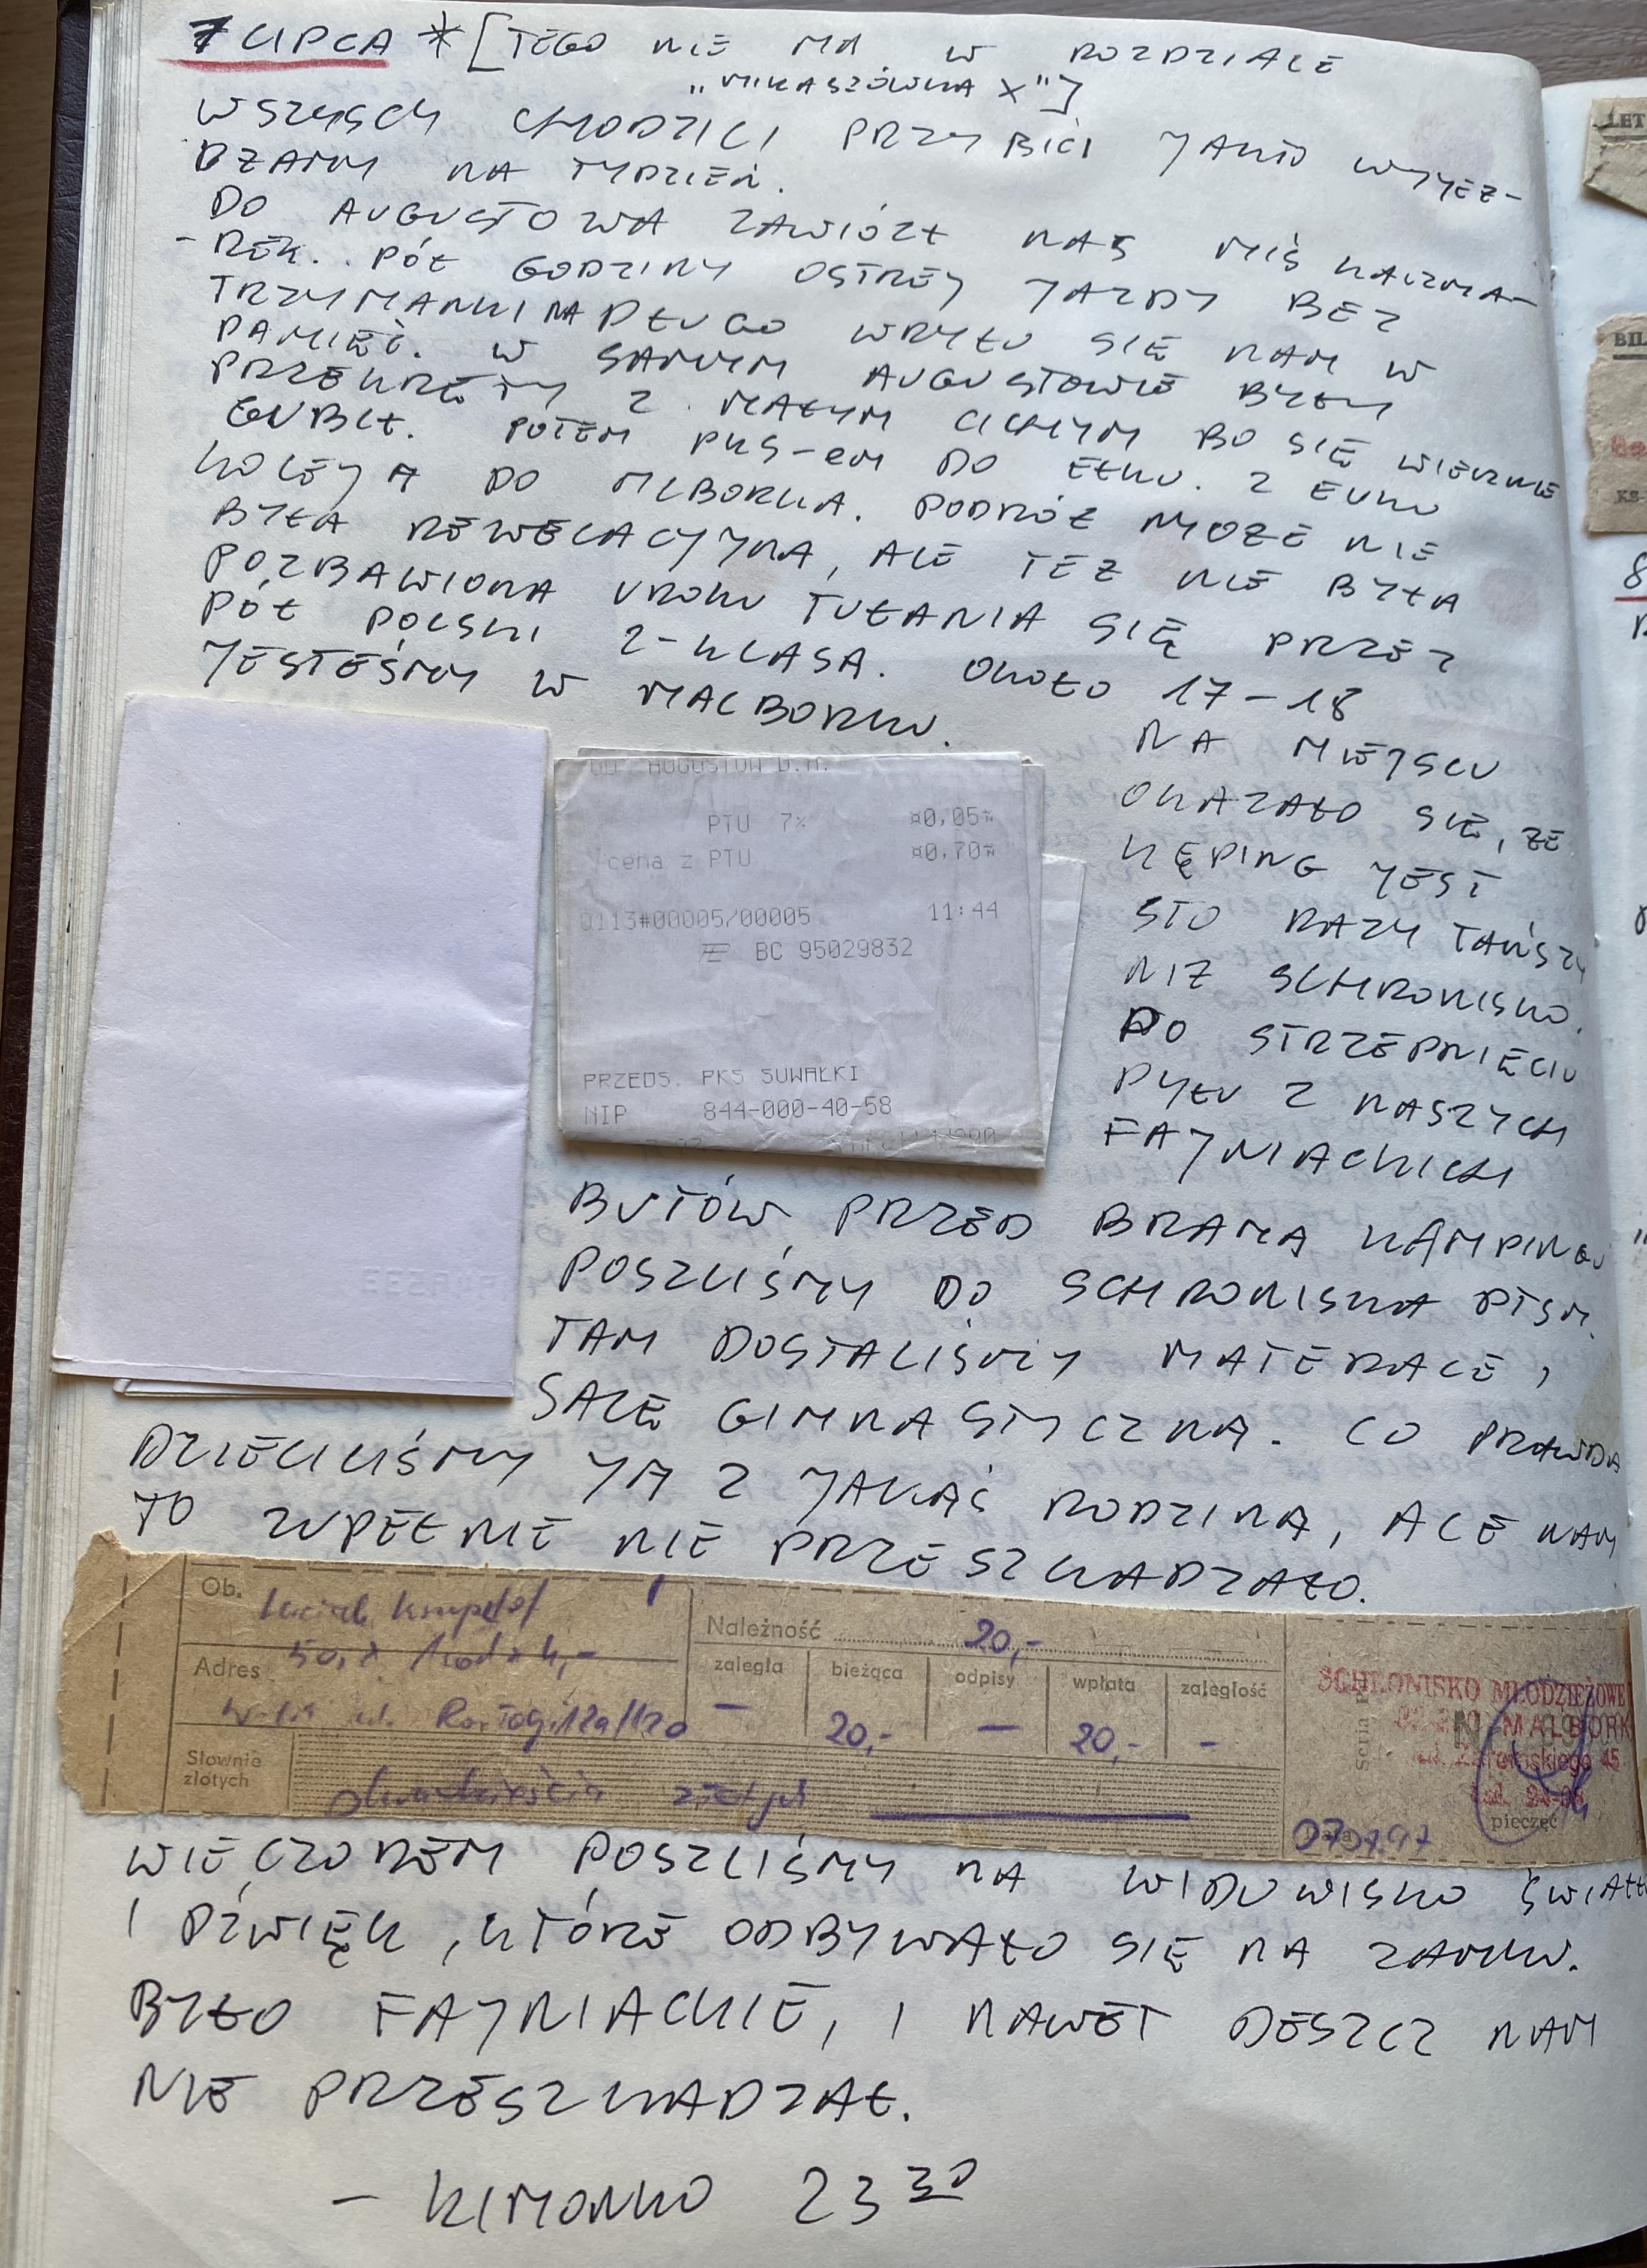 7 LIPCA * [TEGO NIE MA W ROZDZIALE
"MIKASZÓWKA X"]
WSZYSCY CHODZILI PRZYBICI JAKO WYJEŻ-
DŻAMY NA TYDZIEŃ.
DO AUGUSTOWA ZAWIÓZŁ NAS MIŚ KACZMA-
-REK. PÓŁ GODZINY OSTREJ JAZDY BEZ
TRZYMANKI NA DŁUGO WRYŁO SIĘ NAM W
PAMIĘĆ. W SAMYM AUGUSTOWIE BYŁY
PRZEKRĘTY Z MAŁYM CICHYM BO SIĘ WIECZNIE
GUBIŁ. POTEM PKS-em DO EŁKU. Z EŁKU
KOLEJĄ DO MLBORKA. PODRÓŻ MOŻE NIE
BYŁA REWELACYJNA, ALE TEŻ NIE BYŁA
POZBAWIONA UROKU TUŁANIA SIĘ PRZEZ
PÓŁ POLSKI 2-KLASĄ. OKOŁO 17-18
JESTEŚMY W MALBORKU.
NA MIEJSCU
OKAZAŁO SIĘ, ŻE
KĘPING JEST
STO RAZY TAŃSZY
NIŻ SCHRONISKO.
PO STRZEPNIĘCIU
PYŁU Z NASZYCH
FAJNIACKICH
BUTÓW PRZED BRAMĄ KAMPINGU
POSZLIŚMY DO SCHRONISKA PTSM.
TAM DOSTALIŚMY MATERACE,
SALĘ GIMNASTYCZNĄ. CO PRAWDA
DZIELILIŚMY JĄ Z JAKĄŚ RODZINĄ, ALE NAM
TO ZUPEŁNIE NIE PRZESZKADZAŁO.
OD AUGUSTOW D.A.
PTU 7% ¤0,05¤
cena z PTU ¤0,70¤
0113#00005/00005 11:44
BC 95029832
PRZEDS. PKS SUWAŁKI
NIP 844-000-40-58
Ob.
Adres
Słownie złotych
dwadzieścia złotych
Należność 20,-
zaległa bieżąca odpisy wpłata zaległość
- 20,- - 20,- -
SCHRONISKO MŁODZIEŻOWE
MALBORK
45
pieczęć
WIECZOREM POSZLIŚMY NA WIDOWISKO ŚWIATŁO
I DŹWIĘK, KTÓRE ODBYWAŁO SIĘ NA ZAMKU.
BYŁO FAJNIACKIE, I NAWET DESZCZ NAM
NIE PRZESZKADZAŁ.
- KIMONKO 23 30